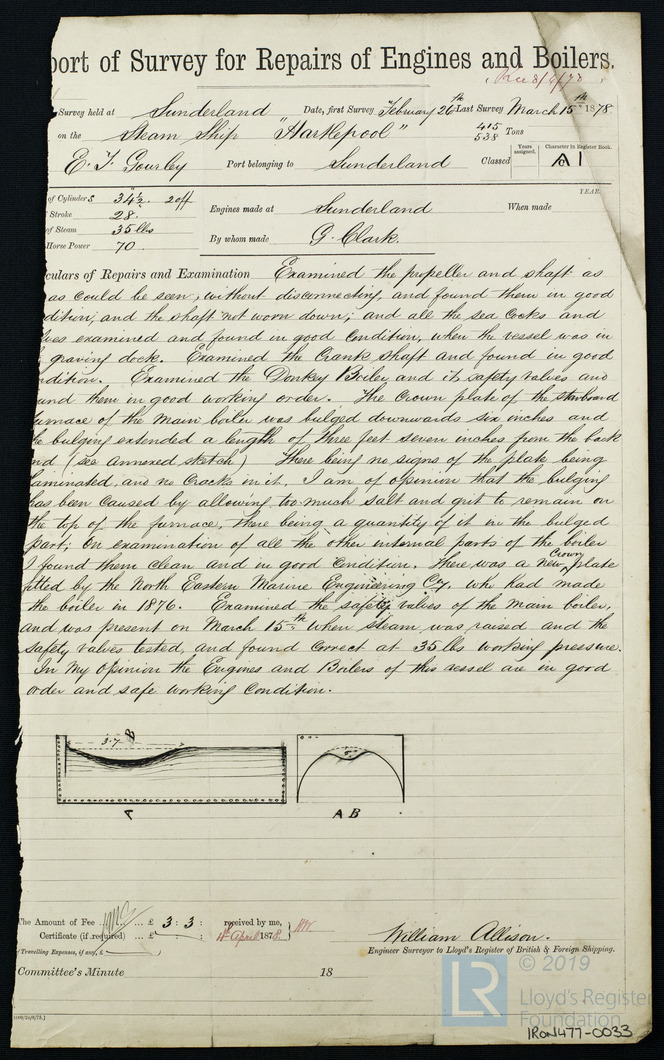 port of Survey for Repairs of Engines and Boilers.
Rec 8/4/78
Survey held at Sunderland Date, first Survey February 26th Last Survey March 15th 1878.
on the Steam Ship "Hartlepool" 415 538 Tons
E. T. Gourley Port belonging to Sunderland Classed Years assigned. Character in Register Book. A1
of Cylinders 34½. 2 off YEAR
Stroke 28. Engines made at Sunderland When made
of Steam 35 lbs
Horse Power 70. By whom made G. Clark.
culars of Repairs and Examination Examined the propeller and shaft as
as could be seen, without disconnecting, and found them in good
dition, and the shaft not worn down; and all the sea cocks and
lves examined and found in good condition, when the vessel was in
graving dock. Examined the Crank shaft and found in good
ndition. Examined the Donkey Boiler and its safety valves and
und them in good working order. The crown plate of the starboard
urnace of the main boiler was bulged downwards six inches and
he bulging extended a length of three feet seven inches from the back
nd (see annexed sketch) There being no signs of the plate being
laminated, and no cracks in it. I am of opinion that the bulging
has been caused by allowing too much salt and grit to remain on
the top of the furnace, there being a quantity of it in the bulged
part; On examination of all the other internal parts of the boiler
I found them clean and in good condition. There was a new Crown plate
fitted by the North Eastern Marine Engineering Coy. who had made
the boiler in 1876. Examined the safety valves of the main boiler,
and was present on March 15th when steam was raised and the
safety valves tested, and found correct at 35 lbs working pressure.
In my opinion the Engines and Boilers of this vessel are in good
order and safe working condition.
3.7 B
6"
A A B
The Amount of Fee ... £ 3 : 3 : received by me,
Certificate (if required) ... £ : : 4th April 1878
(Travelling Expenses, if any, £
William Allison.
Engineer Surveyor to Lloyd's Register of British & Foreign Shipping.
Committee's Minute 18
LR © 2019
Lloyd's Register
Foundation
IRON477-0033